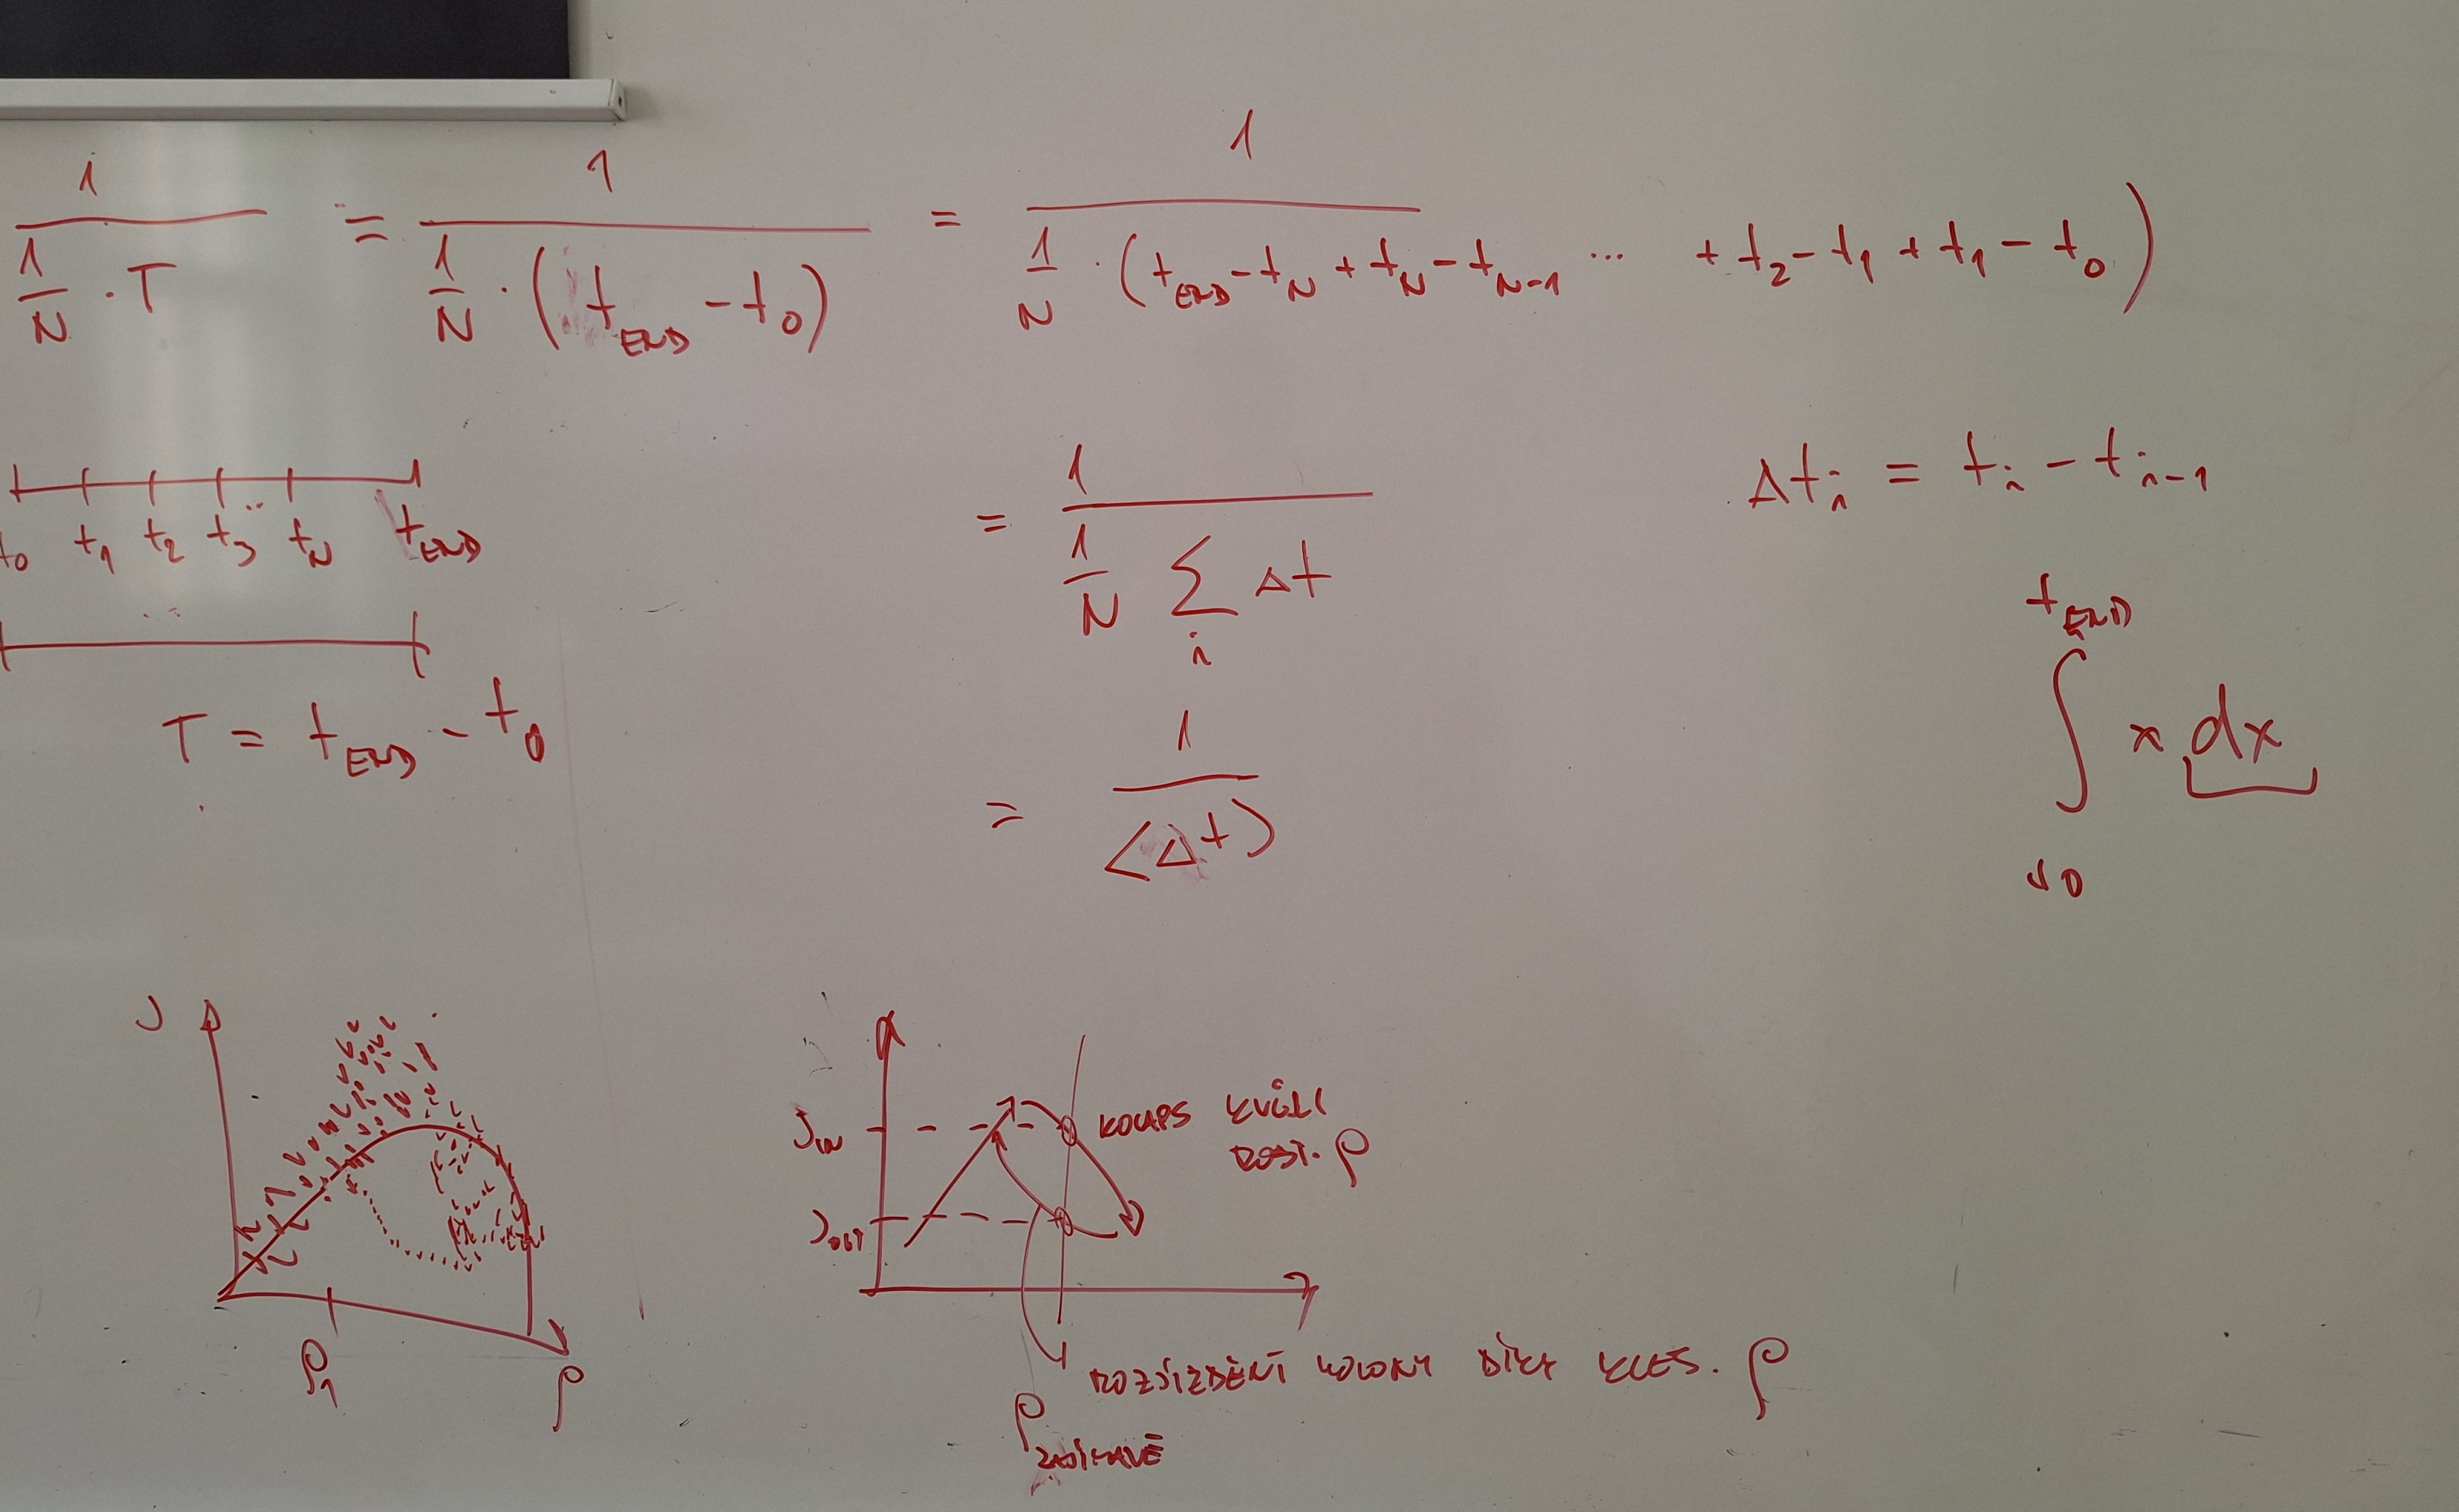 1 / (1/N · T) = 1 / (1/N · (t_END - t_0)) = 1 / (1/N · (t_END - t_N + t_N - t_N-1 ... + t_2 - t_1 + t_1 - t_0))
t_0 t_1 t_2 t_3 .. t_N t_END
T = t_END - t_0
= 1 / (1/N ∑_i Δt)
Δt_i = t_i - t_i-1
= 1 / ⟨Δt⟩
∫ t_END x dx
J
ρ_1
ρ
J_IN
J_OUT
KOLAPS KVŮLI
ROST. ρ
ROZJÍŽDĚNÍ KOLONY DÍKY KLES. ρ
ρ ZAJÍMAVÉ